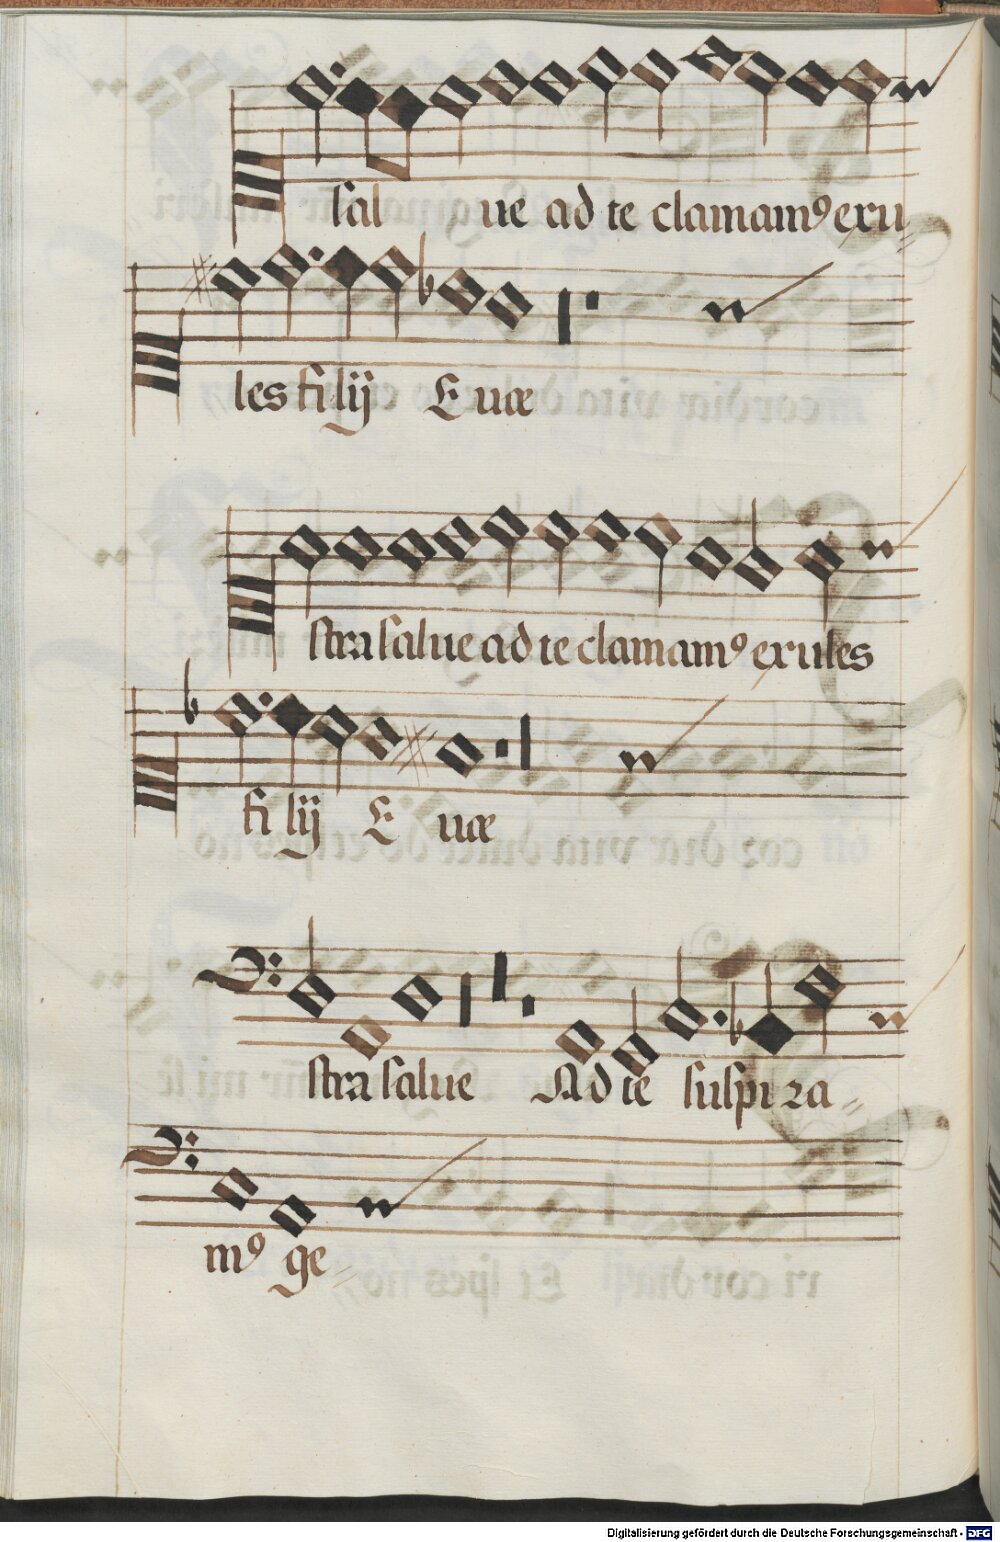 sal ue ad te clamamꝰ exu
les filij Euæ
stra salue ad te clamamꝰ exules
fi lij E uæ
stra salue Ad te suspira
mꝰ ge
Digitalisierung gefördert durch die Deutsche Forschungsgemeinschaft - DFG